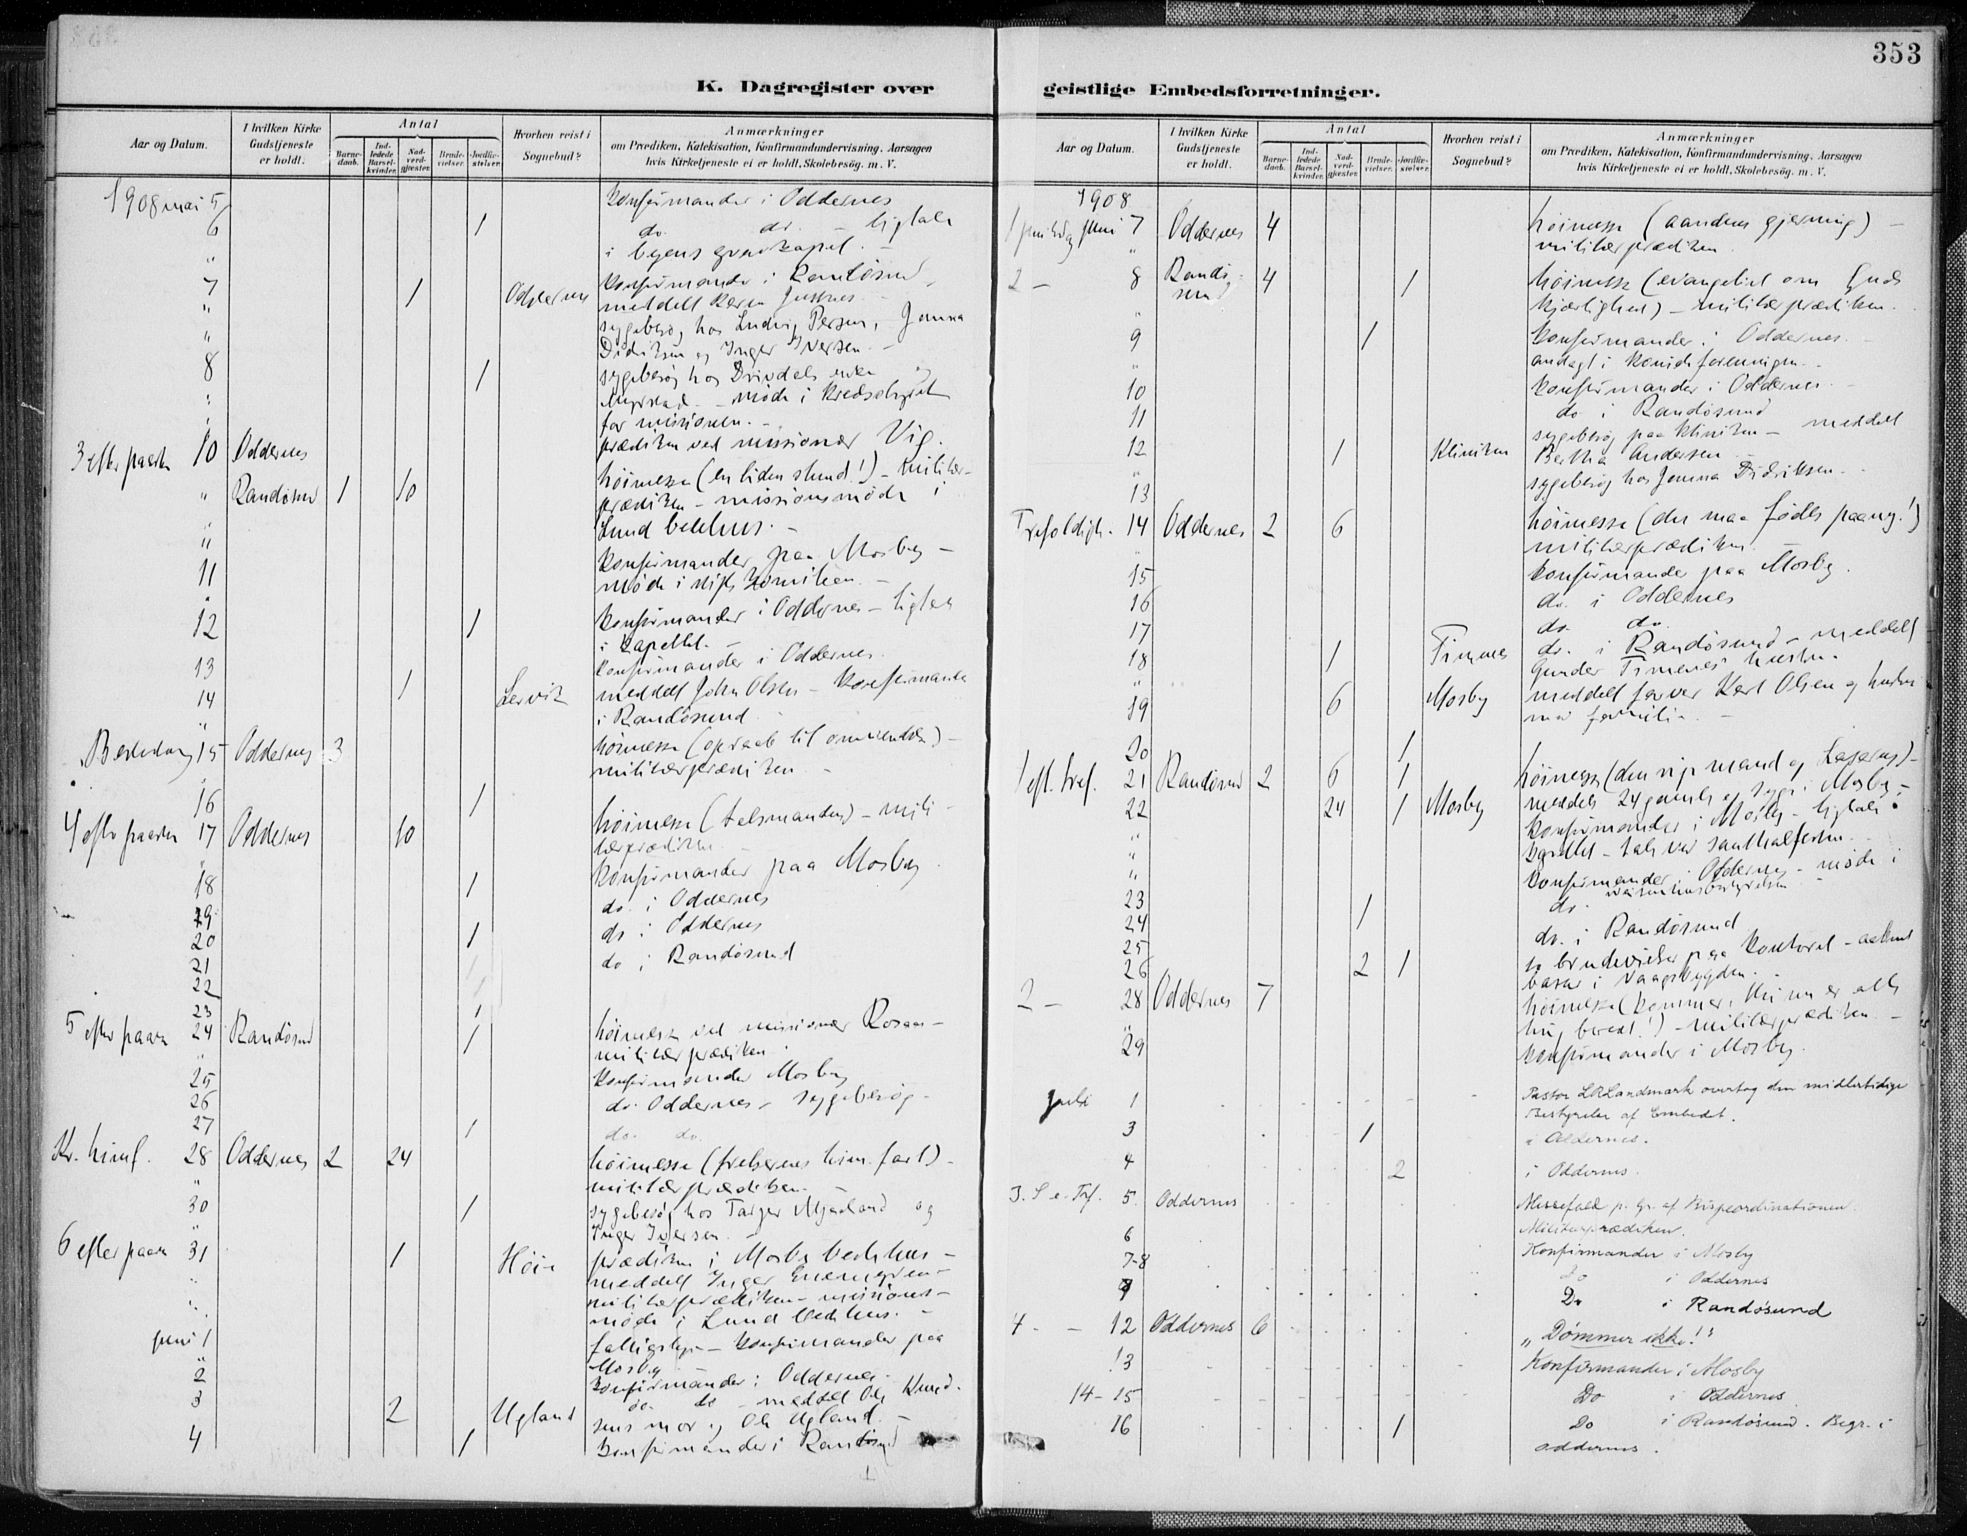 353
K. Dagregister over
geistlige Embedsforretninger.
Aar og Datum.
I hvilken Kirke Gudstjeneste er holdt.
Antal
Barnedaab.
Indledede Barselkvinder.
Nadverdgjæster.
Brudevielser.
Jordfæstelser.
Hvorhen reist i Sognebud?
Anmærkninger
om Prædiken, Katekisation, Konfirmandundervisning, Aarsagen
hvis Kirketjeneste ei er holdt, Skolebesøg. m. V.
1908 mai 5 Konfirmander i Oddernes
6 1 do. do. - ligtale
i byens gravkapel. -
7 1 Oddernes Konfirmander i Randøsund
meddelt Karen
sygebesøg hos Ludvig Persen, Jomna
Didriksen og Inger Iversen. -
8 1 sygebesøg hos Drivdals enke og
- møde i Kredsstyret
for missionen. -
prædiken ved missionær Vig.
3 efter paaske 10 Oddernes høimesse (en liden stund!) - Militær-
" Randøsund 1 10 prædiken - missionsmøde i
Lund bedehus. -
11 Konfirmander paa Mosby -
møde i
12 1 Konfirmander i Oddernes - ligtale
i kapellet. -
13 Konfirmander i Oddernes.
14 1 Lervik meddelt John Olsen - Konfirmander
i Randøsund.
Bededag 15 Oddernes 3 høimesse (opraab til omvendelse) -
militærprædiken. -
16 1
4 efter paaske 17 Oddernes 10 høimesse (talsmanden) - mili-
tærprædiken -
18 1 Konfirmander paa Mosby
19 do. i Oddernes
20 1 do i Oddernes
21 do i Randøsund
22
23 1
5 efter paaske 24 Randøsund 1 høimesse ved missionær Rosaas -
militærprædiken.
25 Konfirmander Mosby
26 do. Oddernes - sygebesøg -
27 1 do. do.
Kr. himf. 28 Oddernes 2 24 høimesse (frelserens himmelfart) -
militærprædiken. -
30 1 sygebesøg hos Targer Mjaaland og
Inger Iversen. -
6 efter paaske 31 1 Høie prædiken i Mosby bedehus -
meddelt Inger
militærprædiken - missions-
møde i Lund bedehus. -
juni 1 fattigstyre - Konfirmander paa
Mosby
2 Konfirmander i Oddernes.
3 2 Ugland do. do - meddelt Ole Knud-
sens mor og Ole Ugland. -
4 1 Konfirmander i Randøsund
Aar og Datum.
I hvilken Kirke Gudstjeneste er holdt.
Antal
Barnedaab.
Indledede Barselkvinder.
Nadverdgjæster.
Brudevielser.
Jordfæstelser.
Hvorhen reist i Sognebud?
Anmærkninger
om Prædiken, Katekisation, Konfirmandundervisning, Aarsagen
hvis Kirketjeneste ei er holdt, Skolebesøg. m. V.
1908
1 pinsedag juni 7 Oddernes 4 høimesse (aandens gjerning) -
militærprædiken.
2 - 8 Randøsund 4 1 høimesse (evangeliet om Guds
kjærlighed) - militærprædiken.
9 1 Konfirmander i Oddernes. -
andagt i
10 Konfirmander i Oddernes. -
11 do i Randøsund
12 1 Kliniken sygebesøg paa Kliniken - meddelt
Bertha Andersen
13 sygebesøg hos Jomna Didriksen. -
Trefoldigh. 14 Oddernes 2 6 høimesse (der maa fødes paany!)
militærprædiken. -
15 Konfirmander paa Mosby.
16 do. i Oddernes
17 do. do.
18 1 Timnes do. i Randøsund - meddelt
Gunder Timenes' hustru.
19 6 Mosby meddelt farver Karl Olsen og hustru
med familie. -
20 1
1 eft. tref. 21 Randøsund 2 6 1 høimesse (den rige mand og Lazarus) -
22 24 1 Mosby meddelt 24 gamle og syge i Mosby -
Konfirmander i Mosby - ligtale i
kapellet - tale ved santhalfesten. -
23 Konfirmander i Oddernes - møde i
24 1 do.
25 do. i Randøsund
26 2 1 to brudevielser paa Kontoret -
basar i Vaagsbygden. -
2 - 28 Oddernes 7 høimesse (kommer, thi nu er alt
beredt!) - militærprædiken. -
29 Konfirmander i Mosby.
Juli 1 Pastor L.R. Landmark overtog den midlertidige
Bestyrelse af Embedet.
3 1 i Oddernes.
4 2 i Oddernes.
3. S. e. Tref. 5. Oddernes Messefald p. gr. af Bispeordinationen.
Militærprædiken.
6 Konfirmander i Mosby
7-8 Do i Oddernes
9 Do i Randøsund
4 - - 12 Oddernes 6 „Dømmer ikke!"
13 Konfirmander i Mosby
14-15 Do i Oddernes
16 1 Do i Randøsund. Begr. i
Oddernes.